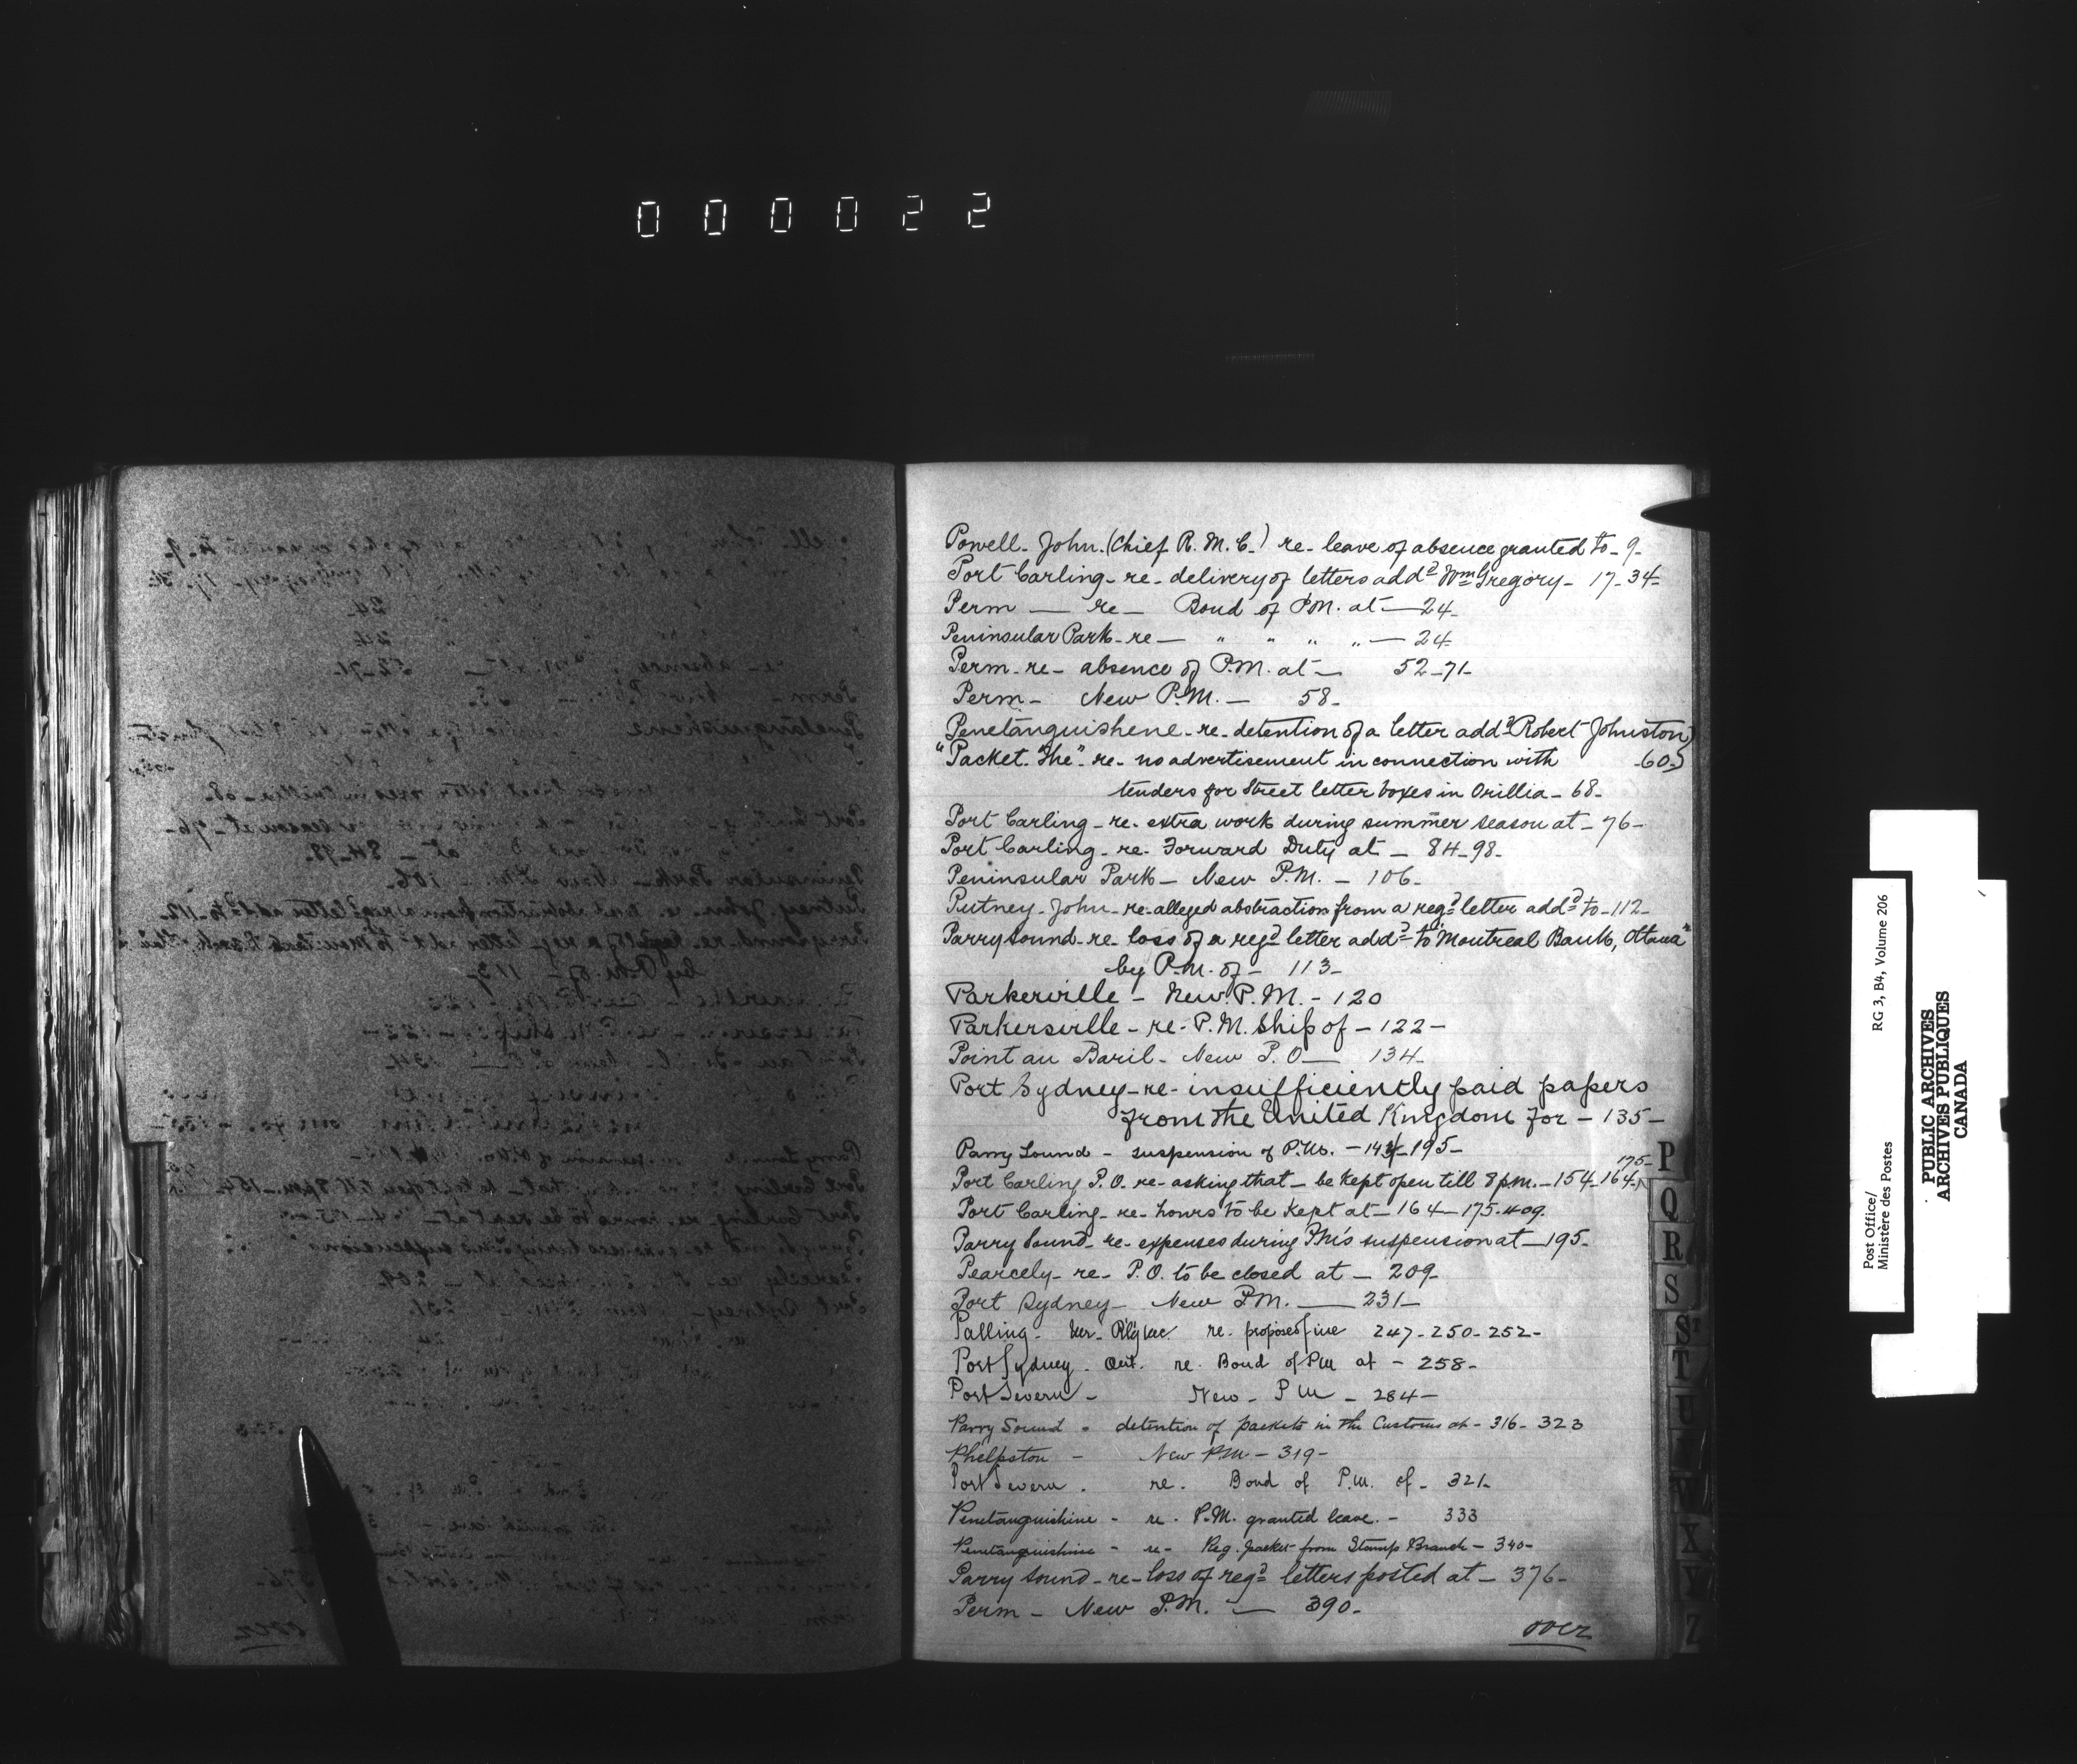 000022
Powell. John. (Chief R. M. C.) re- leave of absence granted to- 9-
Port Carling- re- delivery of letters addd Wm Gregory- 17-34-
Perm — re — Bond of P.M. at — 24-
Peninsular Park- re — " " " " — 24-
Perm- re- absence of P.M. at — 52-71-
Perm- New P.M. — 58-
Penetanguishene- re- detention of a letter addd Robert Johnston)
"Packet. The"- re- no advertisement in connection with -60-)
tenders for Street letter boxes in Orillia- 68-
Port Carling- re- extra work during summer season at- 76-
Port Carling- re- Forward Duty at- 84-98-
Peninsular Park- New P.M. - 106-
Putney- John- re- alleged abstraction from a regd letter addd to- 112-
Parry Sound- re- loss of a regd letter addd to "Montreal Bank, Ottawa"
by P.M. of- 113-
Parkerville- New. P.M. - 120
Parkersville- re- P.M. Ship of- 122-
Point au Baril- New P.O— 134-
Port Sydney- re- insufficiently paid papers
from the United Kingdom for- 135-
Parry Sound - suspension of P.M. - 195-
175-
Port Carling P.O. re- asking that- be kept open till 8 p.m. - 154-164-
Port Carling- re- hours to be kept at- 164-175-409.
Parry Sound- re- expenses during PM's suspension at- 195-
Pearcely- re- P.O. to be closed at- 209-
Port Sydney- New P.M. — 231-
Palling- re. proposed fine 247-250-252-
Port Sydney. Ont. re. Bond of PM at - 258-
Port Severn - New - PM - 284-
Parry Sound - detention of packets in the Customs at - 316- 323
Phelpston - New PM - 319-
Port Severn. re. Bond of P.M. of- 321-
Penetanguishine - re- P.M. granted leave. - 333
Penetanguishine - re- Reg. packet from Stamp Branch - 340-
Parry Sound- re- loss of regd letters posted at- 376-
Perm- New P.M. — 390-
over
P
Q
R
S
ST
T
U
V
X
Y
Z
Post Office/
Ministère des Postes
RG 3, B4, Volume 206
PUBLIC ARCHIVES
ARCHIVES PUBLIQUES
CANADA